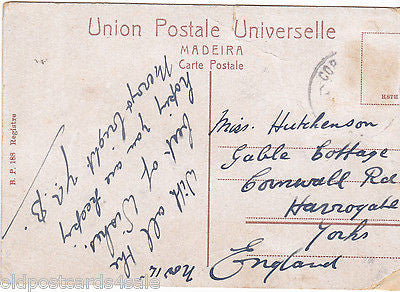 Union Postale Universelle
MADEIRA
Carte Postale
COR
B. P. 188 Registre
Nov 12
With all the
best of Wishes.
hoping you are keeping
Merry & bright
Miss. Hutchenson
Gable Cottage
Cornwall Rd
Harrogate
Yorks
England
oldpostcards4sale